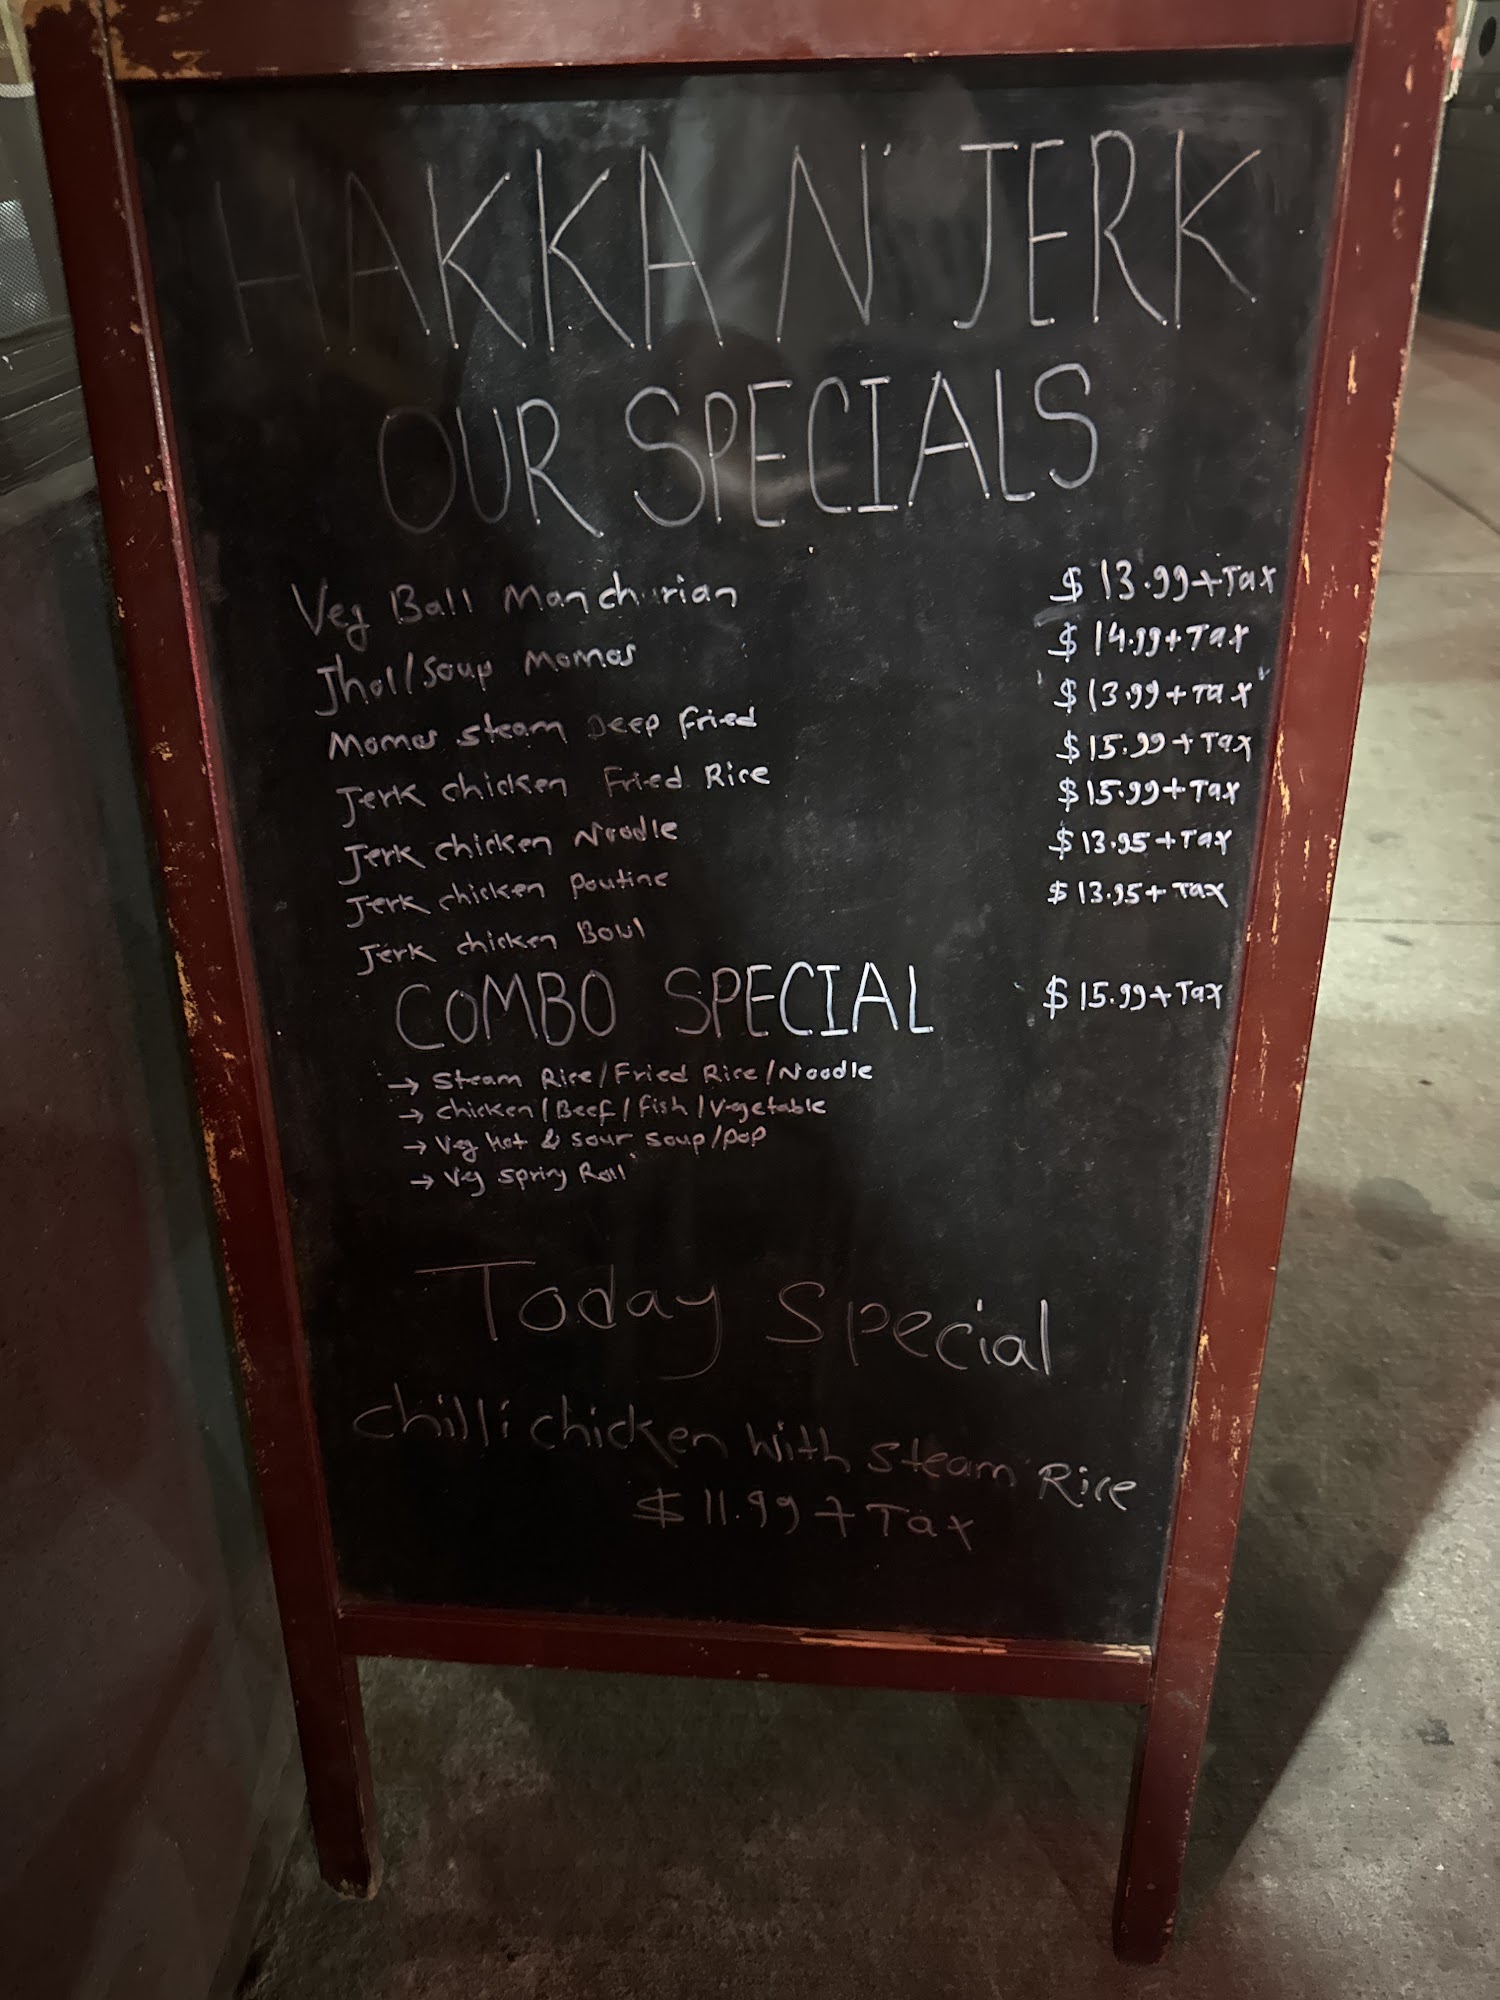 HAKKA N' JERK
OUR SPECIALS
Veg Ball Manchurian $13.99+Tax
Jhol/Soup Momos $14.99+Tax
Momos steam Deep fried $13.99+Tax
Jerk chicken Fried Rice $15.99+Tax
Jerk chicken Noodle $15.99+Tax
Jerk chicken Poutine $13.95+Tax
Jerk chicken Bowl $13.95+Tax
COMBO SPECIAL $15.99+Tax
→ Steam Rice/Fried Rice/Noodle
→ chicken/Beef/fish/Vegetable
→ Veg Hot & sour soup/pop
→ Veg spring Roll
Today Special
Chilli chicken with steam Rice
$11.99+Tax